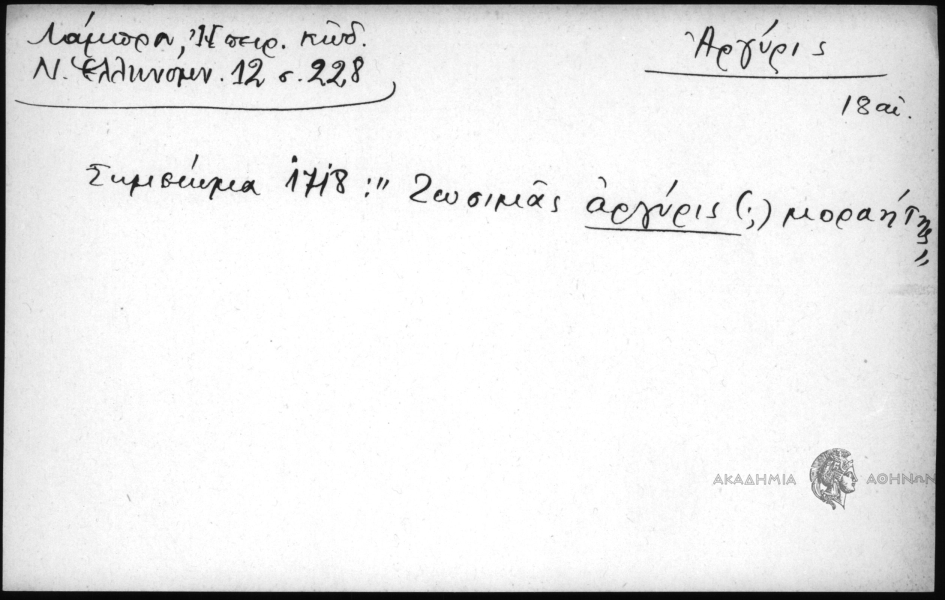 Λάμπρου, Ἠπειρ. κώδ.
Ν. Ἑλληνομν. 12 σ. 228
Ἀργύρις
18 αἰ.
Σημείωμα 1718 : " Ζωσιμᾶς ἀργύρις (;) μοραήτης"
ΑΚΑΔΗΜΙΑ ΑΘΗΝΩΝ